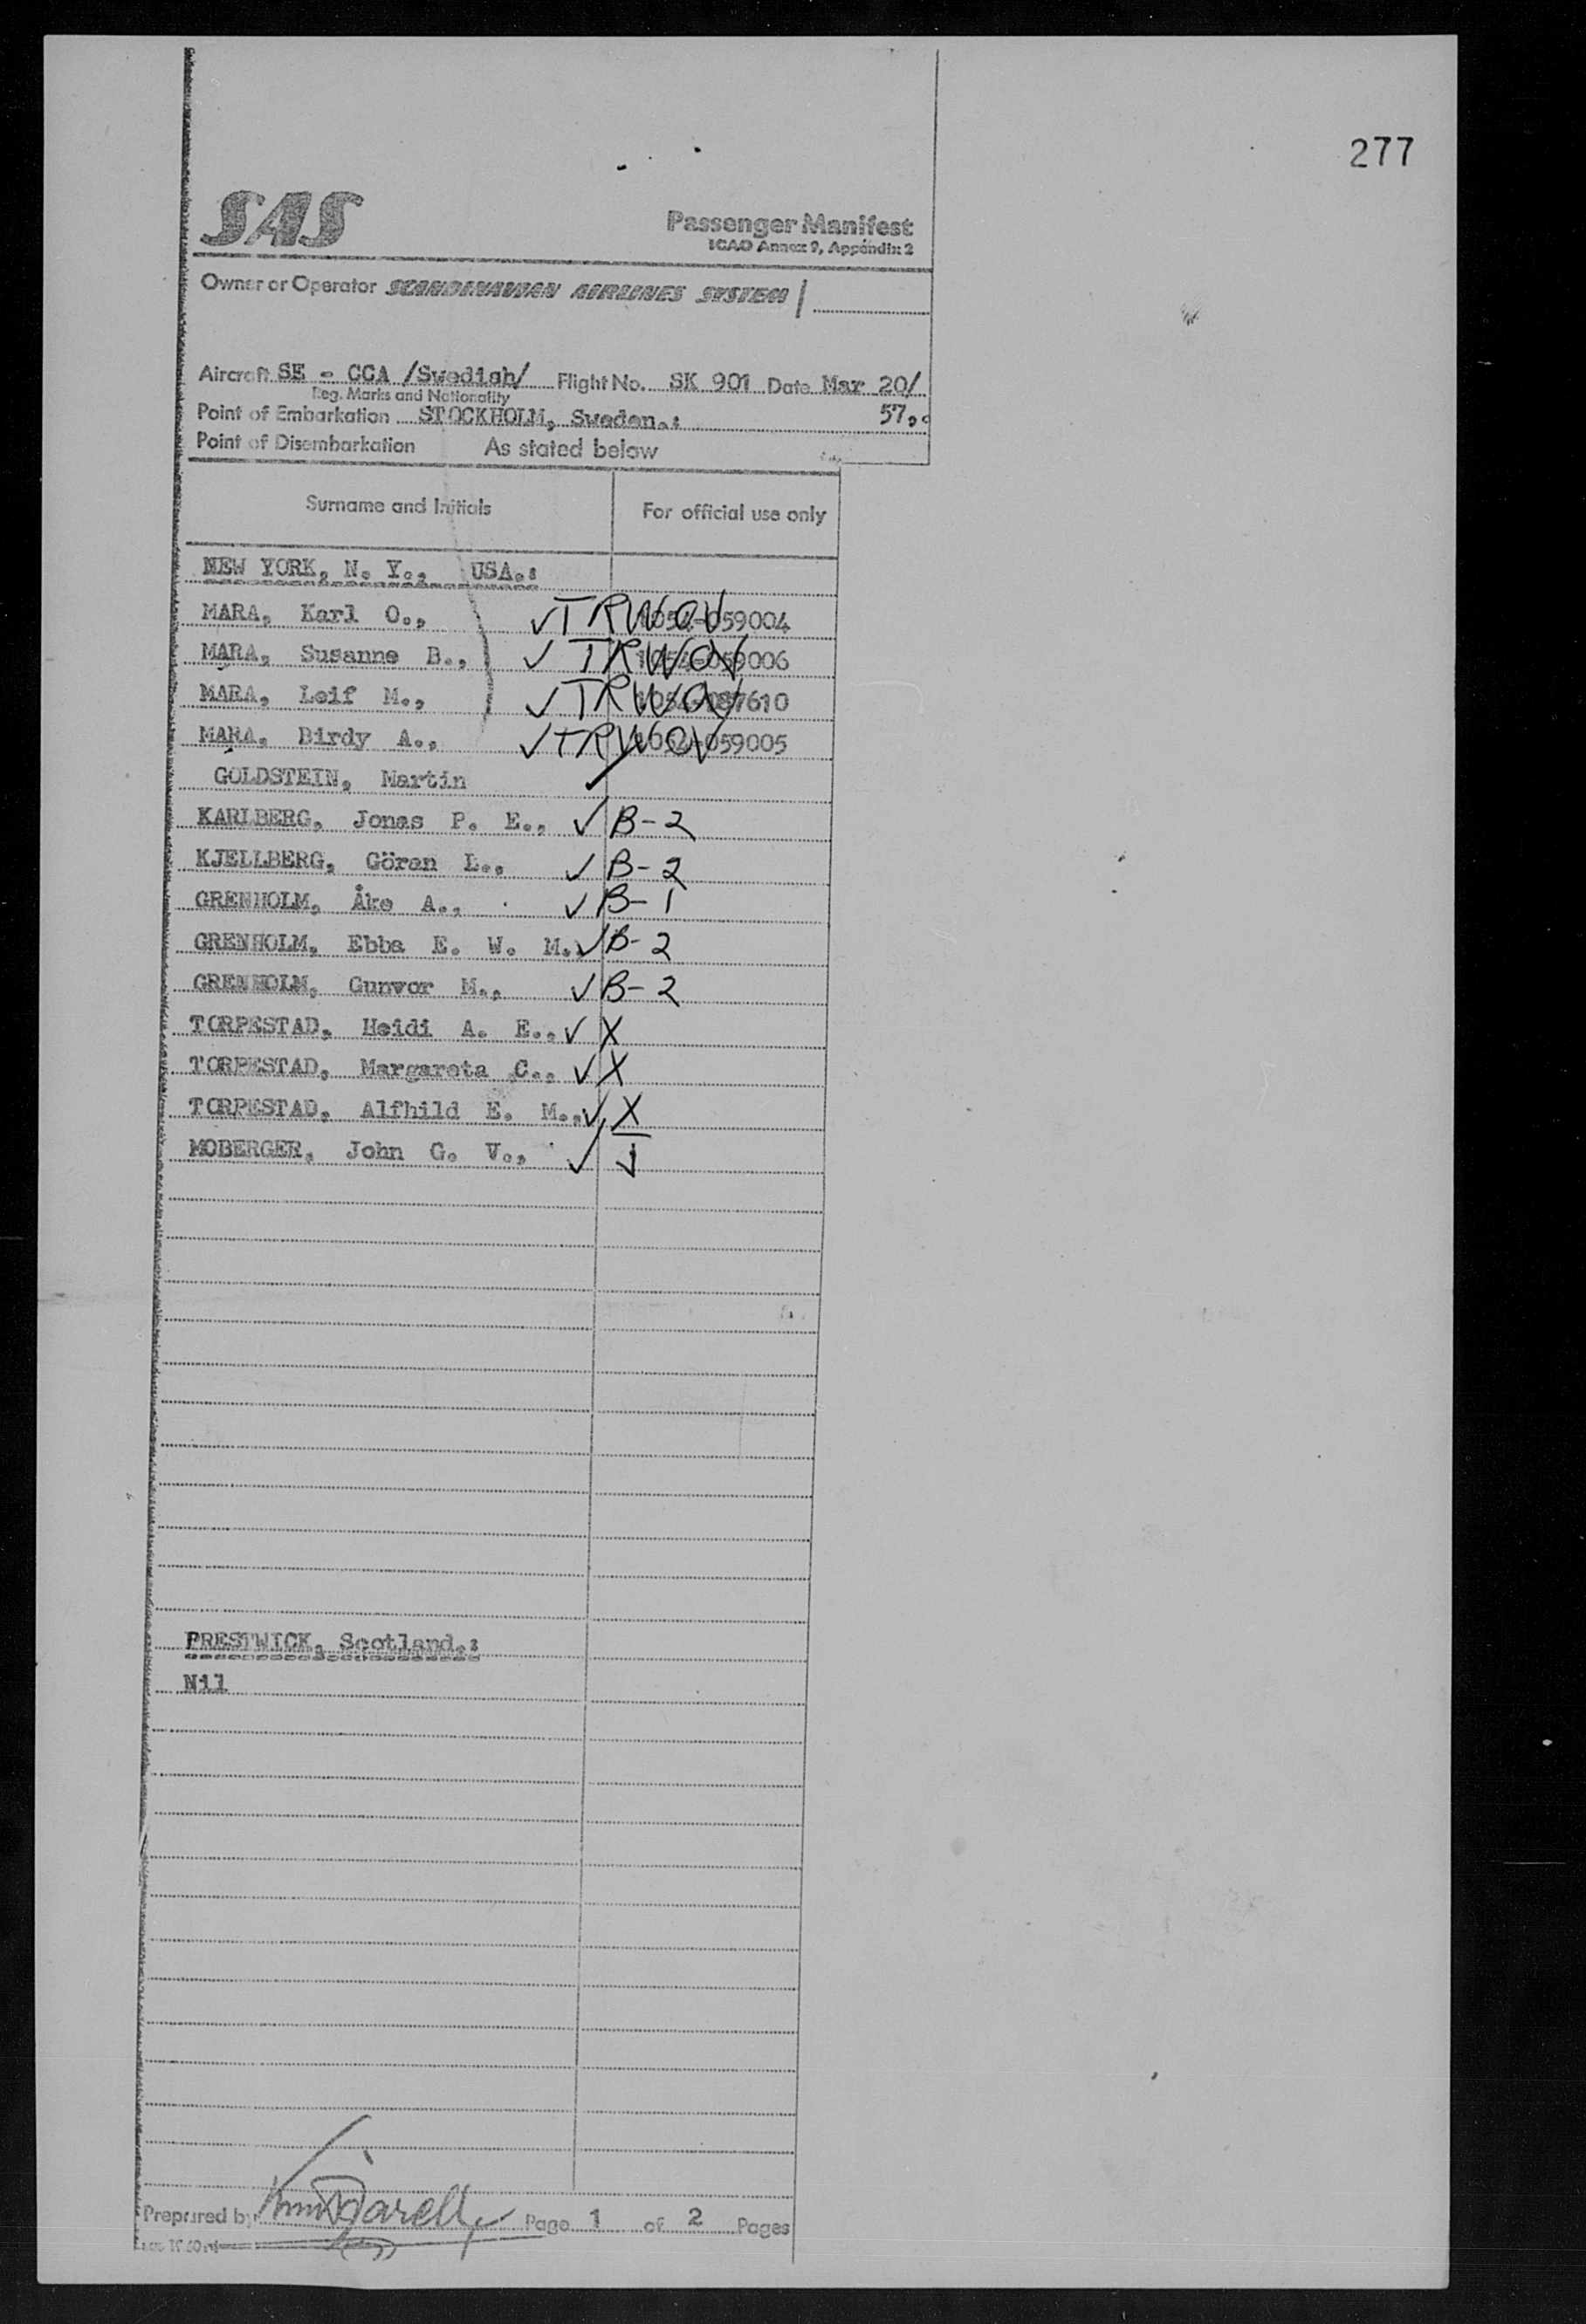 277
SAS
Passenger Manifest
ICAO Annex 9, Appendix 2
Owner or Operator SCANDINAVIAN AIRLINES SYSTEM /
Aircraft SE - CCA /Swedish/ Flight No. SK 901 Date Mar 20/
Reg. Marks and Nationality
Point of Embarkation STOCKHOLM, Sweden.: 57.
Point of Disembarkation As stated below
Surname and Initials For official use only
NEW YORK, N. Y., USA.:
MARA, Karl O., ✓ TRWOV 1054-059004
MARA, Susanne B., ✓ TRWOV 1054-059006
MARA, Leif M., ✓ TRWOV 1054-087610
MARA, Birdy A., ✓ TRWOV 1054-059005
GOLDSTEIN, Martin ✓
KARLBERG, Jonas P. E., ✓ B-2
KJELLBERG, Göran L., ✓ B-2
GRENHOLM, Åke A., ✓ B-1
GRENHOLM, Ebba E. W. M., ✓ B-2
GRENHOLM, Gunvor M., ✓ B-2
TORPESTAD, Heidi A. E., ✓ X
TORPESTAD, Margareta C., ✓ X
TORPESTAD, Alfhild E. M., ✓ X
MOBERGER, John G. V., ✓
PRESTWICK, Scotland.:
Nil
Prepared by Page 1 of 2 Pages